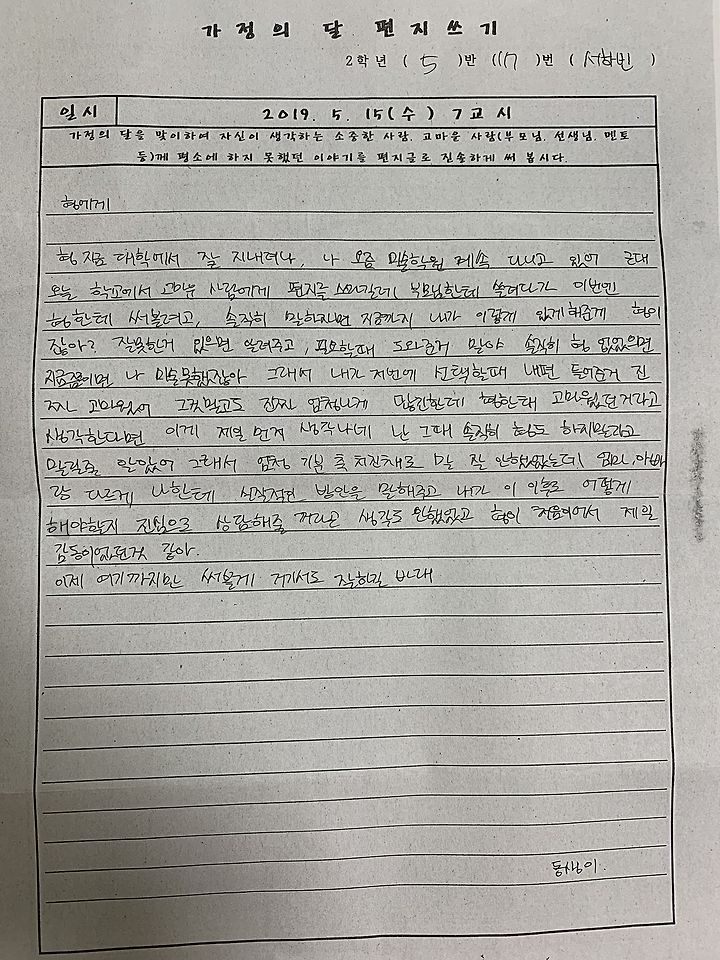 가정의 달 편지쓰기
2학년 ( 5 )반 (17 )번 ( 서하빈 )
일시 2019. 5. 15(수) 7교시
가정의 달을 맞이하여 자신이 생각하는 소중한 사람, 고마운 사람(부모님, 선생님, 멘토
등)께 평소에 하지 못했던 이야기를 편지글로 진솔하게 써 봅시다.
형에게
형 지금 대학에서 잘 지내려나, 나 요즘 미술학원 계속 다니고 있어 근데
오늘 학교에서 고마운 사람에게 편지를 쓰라길래 부모님한테 쓸려다가 이번엔
형한테 써볼려고, 솔직히 말하자면 지금까지 내가 이렇게 있게해준게 형이
잖아? 잘못한거 있으면 알려주고, 필요할때 도와준거 말야 솔직히 형 없었으면
지금쯤이면 나 미술못했잖아 그래서 내가 저번에 선택할때 내편 들어준거 진
짜 고마웠어 그것말고도 진짜 엄청나게 많긴한데 형한태 고마웠던거라고
생각한다면 이게 제일 먼저 생각나네 난 그때 솔직히 형도 하지말라고
말릴줄 알았어 그래서 엄청 기분 축 처진채로 말 잘 안했었는데 엄마, 아빠
랑 다르게 나한테 방안을 말해주고 내가 이 이후로 어떻게
해야할지 진심으로 상담해줄 꺼라곤 생각도 안했었고 형이 처음이어서 제일
감동이었던것 같아.
이제 여기까지만 써볼게 거기서도 잘하길 바래
동생이.